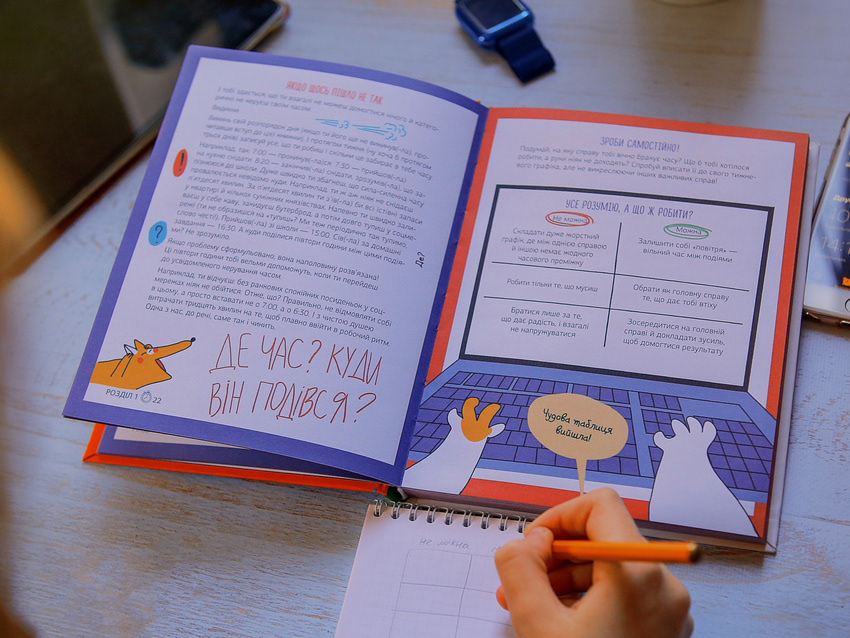 ЯКЩО ЩОСЬ ПІШЛО НЕ ТАК
І тобі здається, що ти взагалі не можеш домогтися нічого й катего-
рично не керуєш своїм часом.
Видихни.
Випиши свій розпорядок дня (якщо ти його ще не викинув(-ла), про-
читавши вступ до цієї книжки). І протягом тижня (ну хоча б протягом
трьох днів) записуй усе, що ти робиш і скільки це забирає в тебе часу.
Наприклад, так: 7:00 — прокинув(-ла)ся. 7:30 — прийшов(-ла)
на кухню снідати. 8:20 — закінчив(-ла) снідати, зрозумів(-ла), що за-
пізнююся до школи. Дуже швидко ти збагнеш, що сила-силенна часу
провалюється невідомо куди. Наприклад, ти ж аж ніяк не снідаєш
п'ятдесят хвилин. За п'ятдесят хвилин ти з'їв(-ла) би всі їстівні запаси
у квартирі й кількох суміжних князівствах. Напевно ти швидко зали-
ваєш у себе каву, закидуєш бутерброд, а потім довго тупиш у соцме-
режі (ти не образишся на «тупиш»? Ми теж періодично так тупимо,
слово честі!). Прийшов(-ла) зі школи — 15:00. Сів(-ла) за домашні
завдання — 16:30. А куди поділися півтори години між цими подія-
ми? Не зрозуміло.
Де?
Якщо проблему сформульовано, вона наполовину розв'язана!
Ці півтори години тобі вельми допоможуть, коли ти перейдеш
до усвідомленого керування часом.
Наприклад, ти відчуєш: без ранкових спокійних посиденьок у соц-
мережах ніяк не обійтися. Отже, що? Правильно, не відмовляти собі
в цьому, а просто вставати не о 7:00, а о 6:30. І з чистою душею
витрачати тридцять хвилин на те, щоб плавно ввійти в робочий ритм.
Одна з нас, до речі, саме так і чинить.
ДЕ ЧАС? КУДИ
ВІН ПОДІВСЯ?
РОЗДІЛ 1 22
ЗРОБИ САМОСТІЙНО!
Подумай, на яку справу тобі вічно бракує часу? Що б тобі хотілося
робити, а руки ніяк не доходять? Спробуй вписати її до свого тижне-
вого графіка, але не викреслюючи інших важливих справ!
УСЕ РОЗУМІЮ, А ЩО Ж РОБИТИ?
Не можна
Можна
Складати дуже жорсткий
графік, де між однією справою
й іншою немає жодного
часового проміжку
Залишити собі «повітря» —
вільний час між подіями
Робити тільки те, що мусиш
Обрати як головну справу
те, що дає тобі втіху
Братися лише за те,
що дає радість, і взагалі
не напружуватися
Зосередитися на головній
справі й докладати зусиль,
щоб домогтися результату
Чудова таблиця
вийшла!
не можна